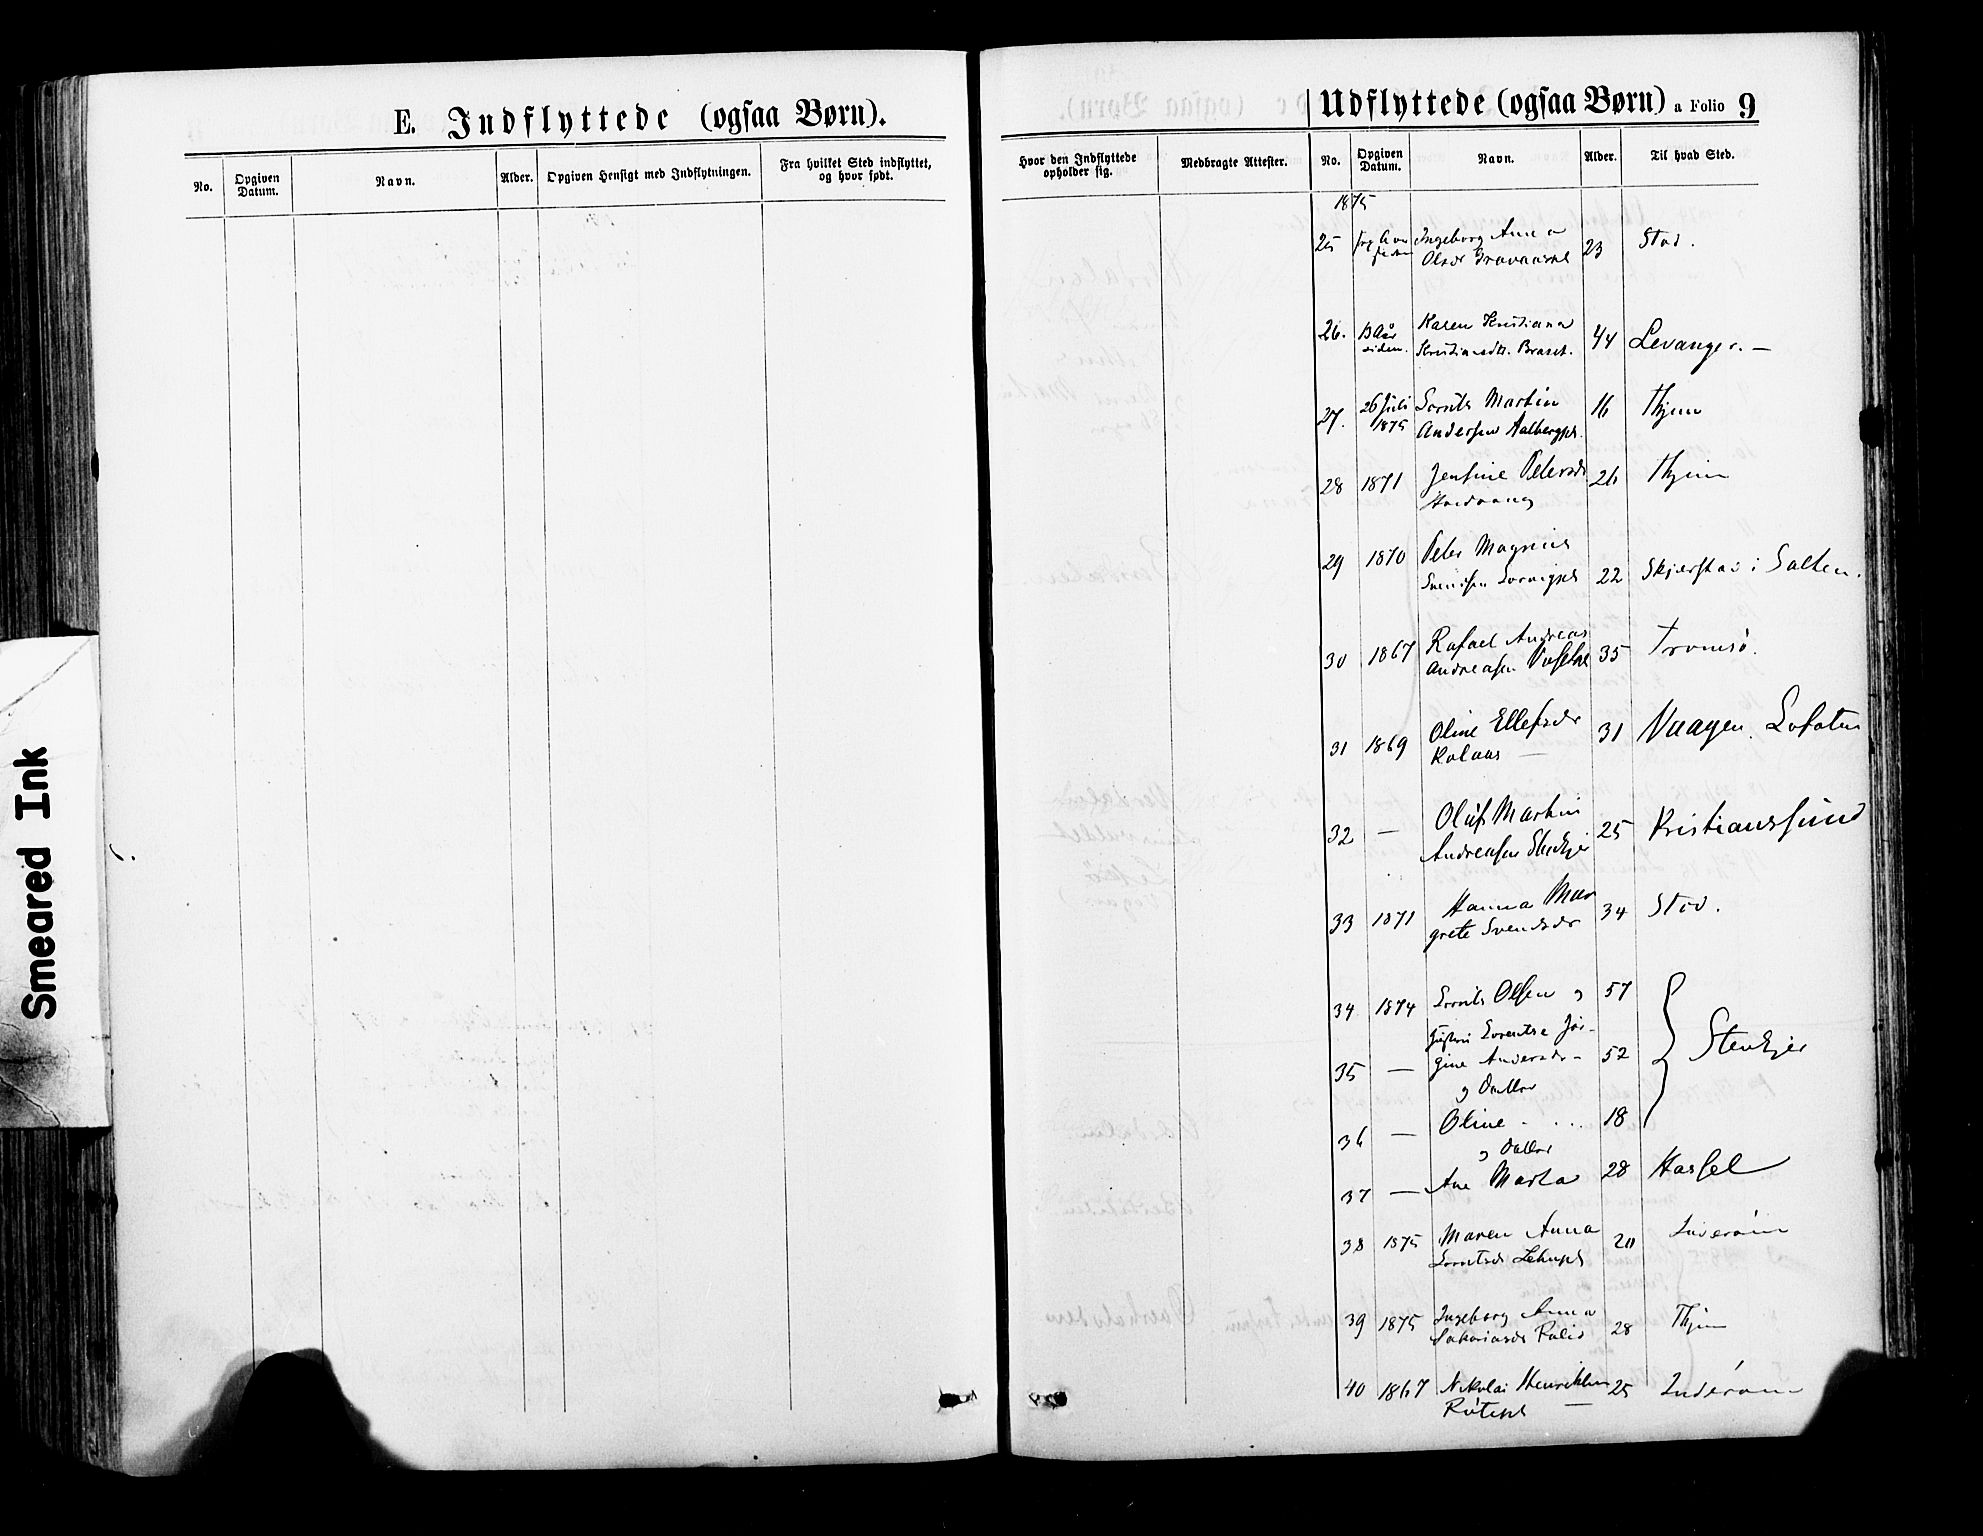 E. Indflyttede (ogsaa Børn).
No.
Opgiven Datum.
Navn.
Alder.
Opgiven Hensigt med Indflytningen.
Fra hvilket Sted indflyttet, og hvor født.
Hvor den Indflyttede opholder sig.
Medbragte Attester.
Udflyttede (ogsaa Børn) a Folio 9
No.
Opgiven Datum.
Navn.
Alder.
Til hvad Sted.
1875
25 Ingeborg Anna 23 Stod.
Olsdr
26. 13 Aar Karen Kristiana 44 Levanger. —
siden. Kristiansdtr.
27. 26 Juli Lornts Martin 16 Thjem
1875 Andersen Aalbergpl.
28 1871 Jensine Petersdr 26 Thjem
29 1870 Peter Magnus
Svendsen 22 Skjerstad i Salten.
30 1867 Rafael Andreas 35 Tromsö.
Andreasen
31 1869 Oline Ellefsdr 31 Vaagen. Lofoten
Kolaas —
32 — Oluf Martin 25 Kristianssund
Andreasen Stenkjer
33 1871 Hanna Mar 34 Stod.
grete Svendsdr
34 1874 Lornts Olsen og 57
Hustru Lorentse Jör-
35 — gine Andersdr - 52 Stenkjer
og Datter
36 — Oline - . . . 18
og Datter
37 — Ane Marta 28 Hassel
38 1875 Maren Anna 20 Inderöen
Lorntsdr
39 1875 Ingeborg Anna 28 Thjem
Sakariasdr
40 1867 Nikolai Henriksen 25 Inderöen
Smeared Ink